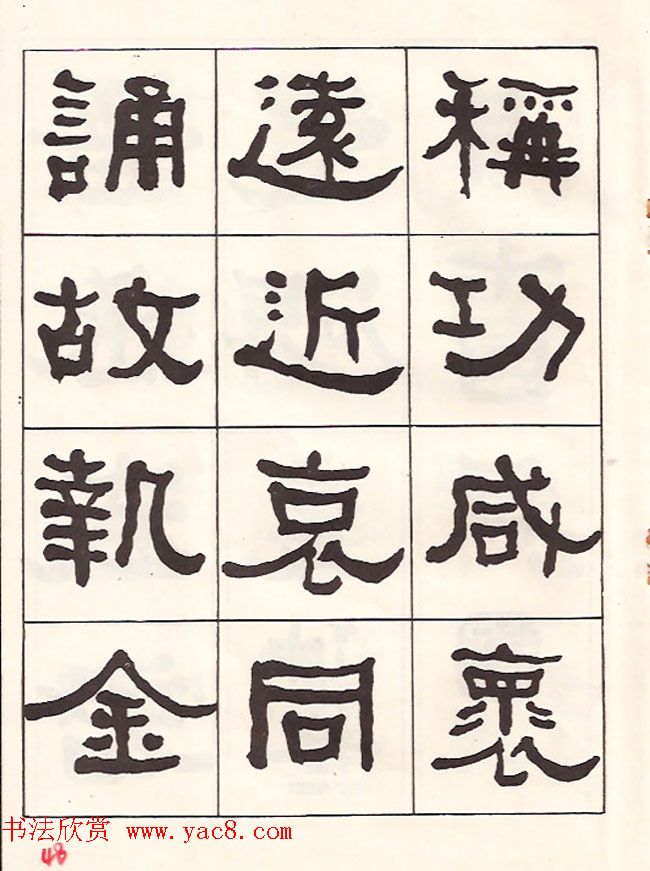 稱功咸褱
遠近哀同
誦故執金
书法欣赏 www.yac8.com
48